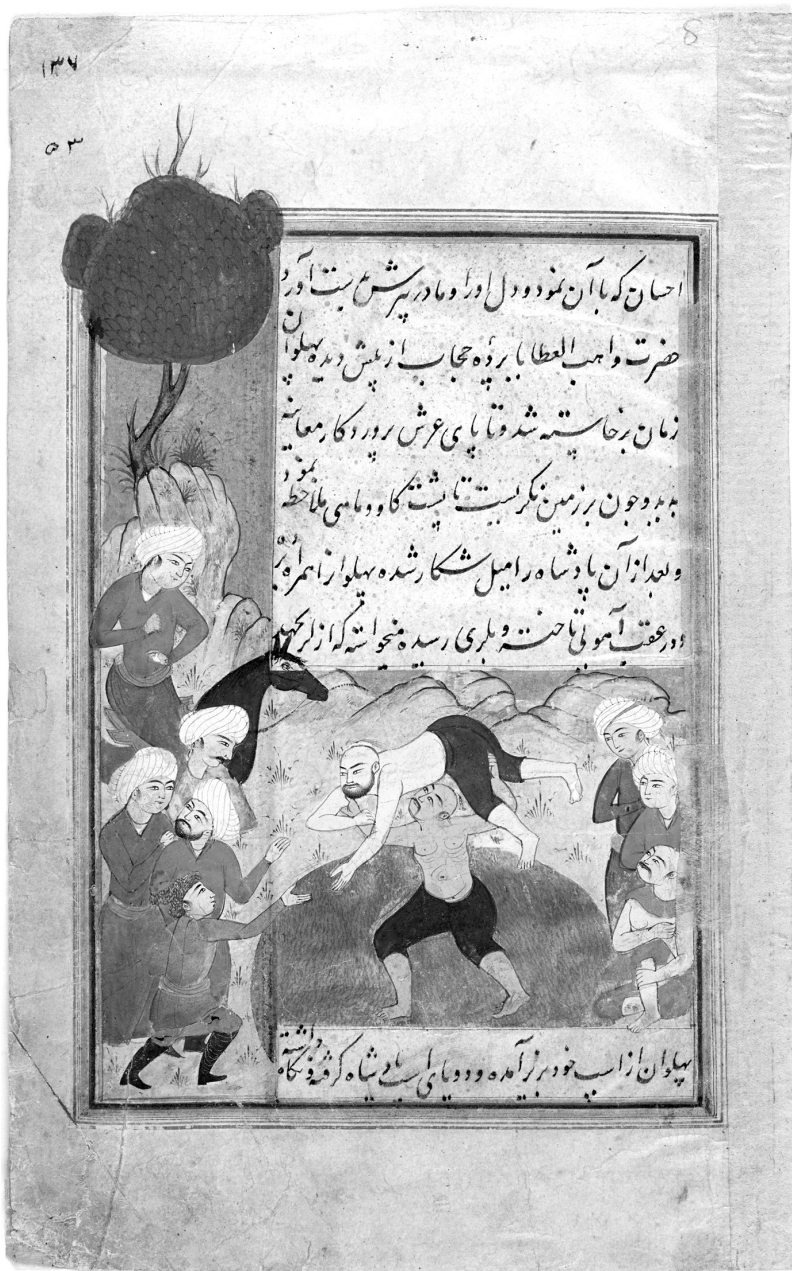 ۱۳۷
۵۳
8
احسان که با آن نمود و دل او را و مادر پیرش بدست آورد
حضرت واهب العطایا پرده حجاب از پیش دیده پهلوان
زمان برخاسته شد و تا پای عرش پروردکار معاینه
بدید و چون بر زمین نکریست تا پشت کاو و ماهی ملاحظه نمود
و بعد از آن پادشاه را میل شکار شده پهلوانرا همراه
و در عقب آهوئی تاخته و بلری رسیده میخواسته که از لر بجهد
پهلوان از اسپ خود بزیر آمده و دو پای اسپ پادشاه کرفته و نکاه داشته